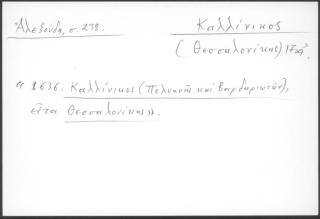 Ἀλεξούδη, σ. 278.
Καλλίνικος
(Θεσσαλονίκης)
« 1636. Καλλίνικος (Πολυανῆς καὶ Βαρδαριωτῶν),
εἶτα Θεσσαλονίκης ».